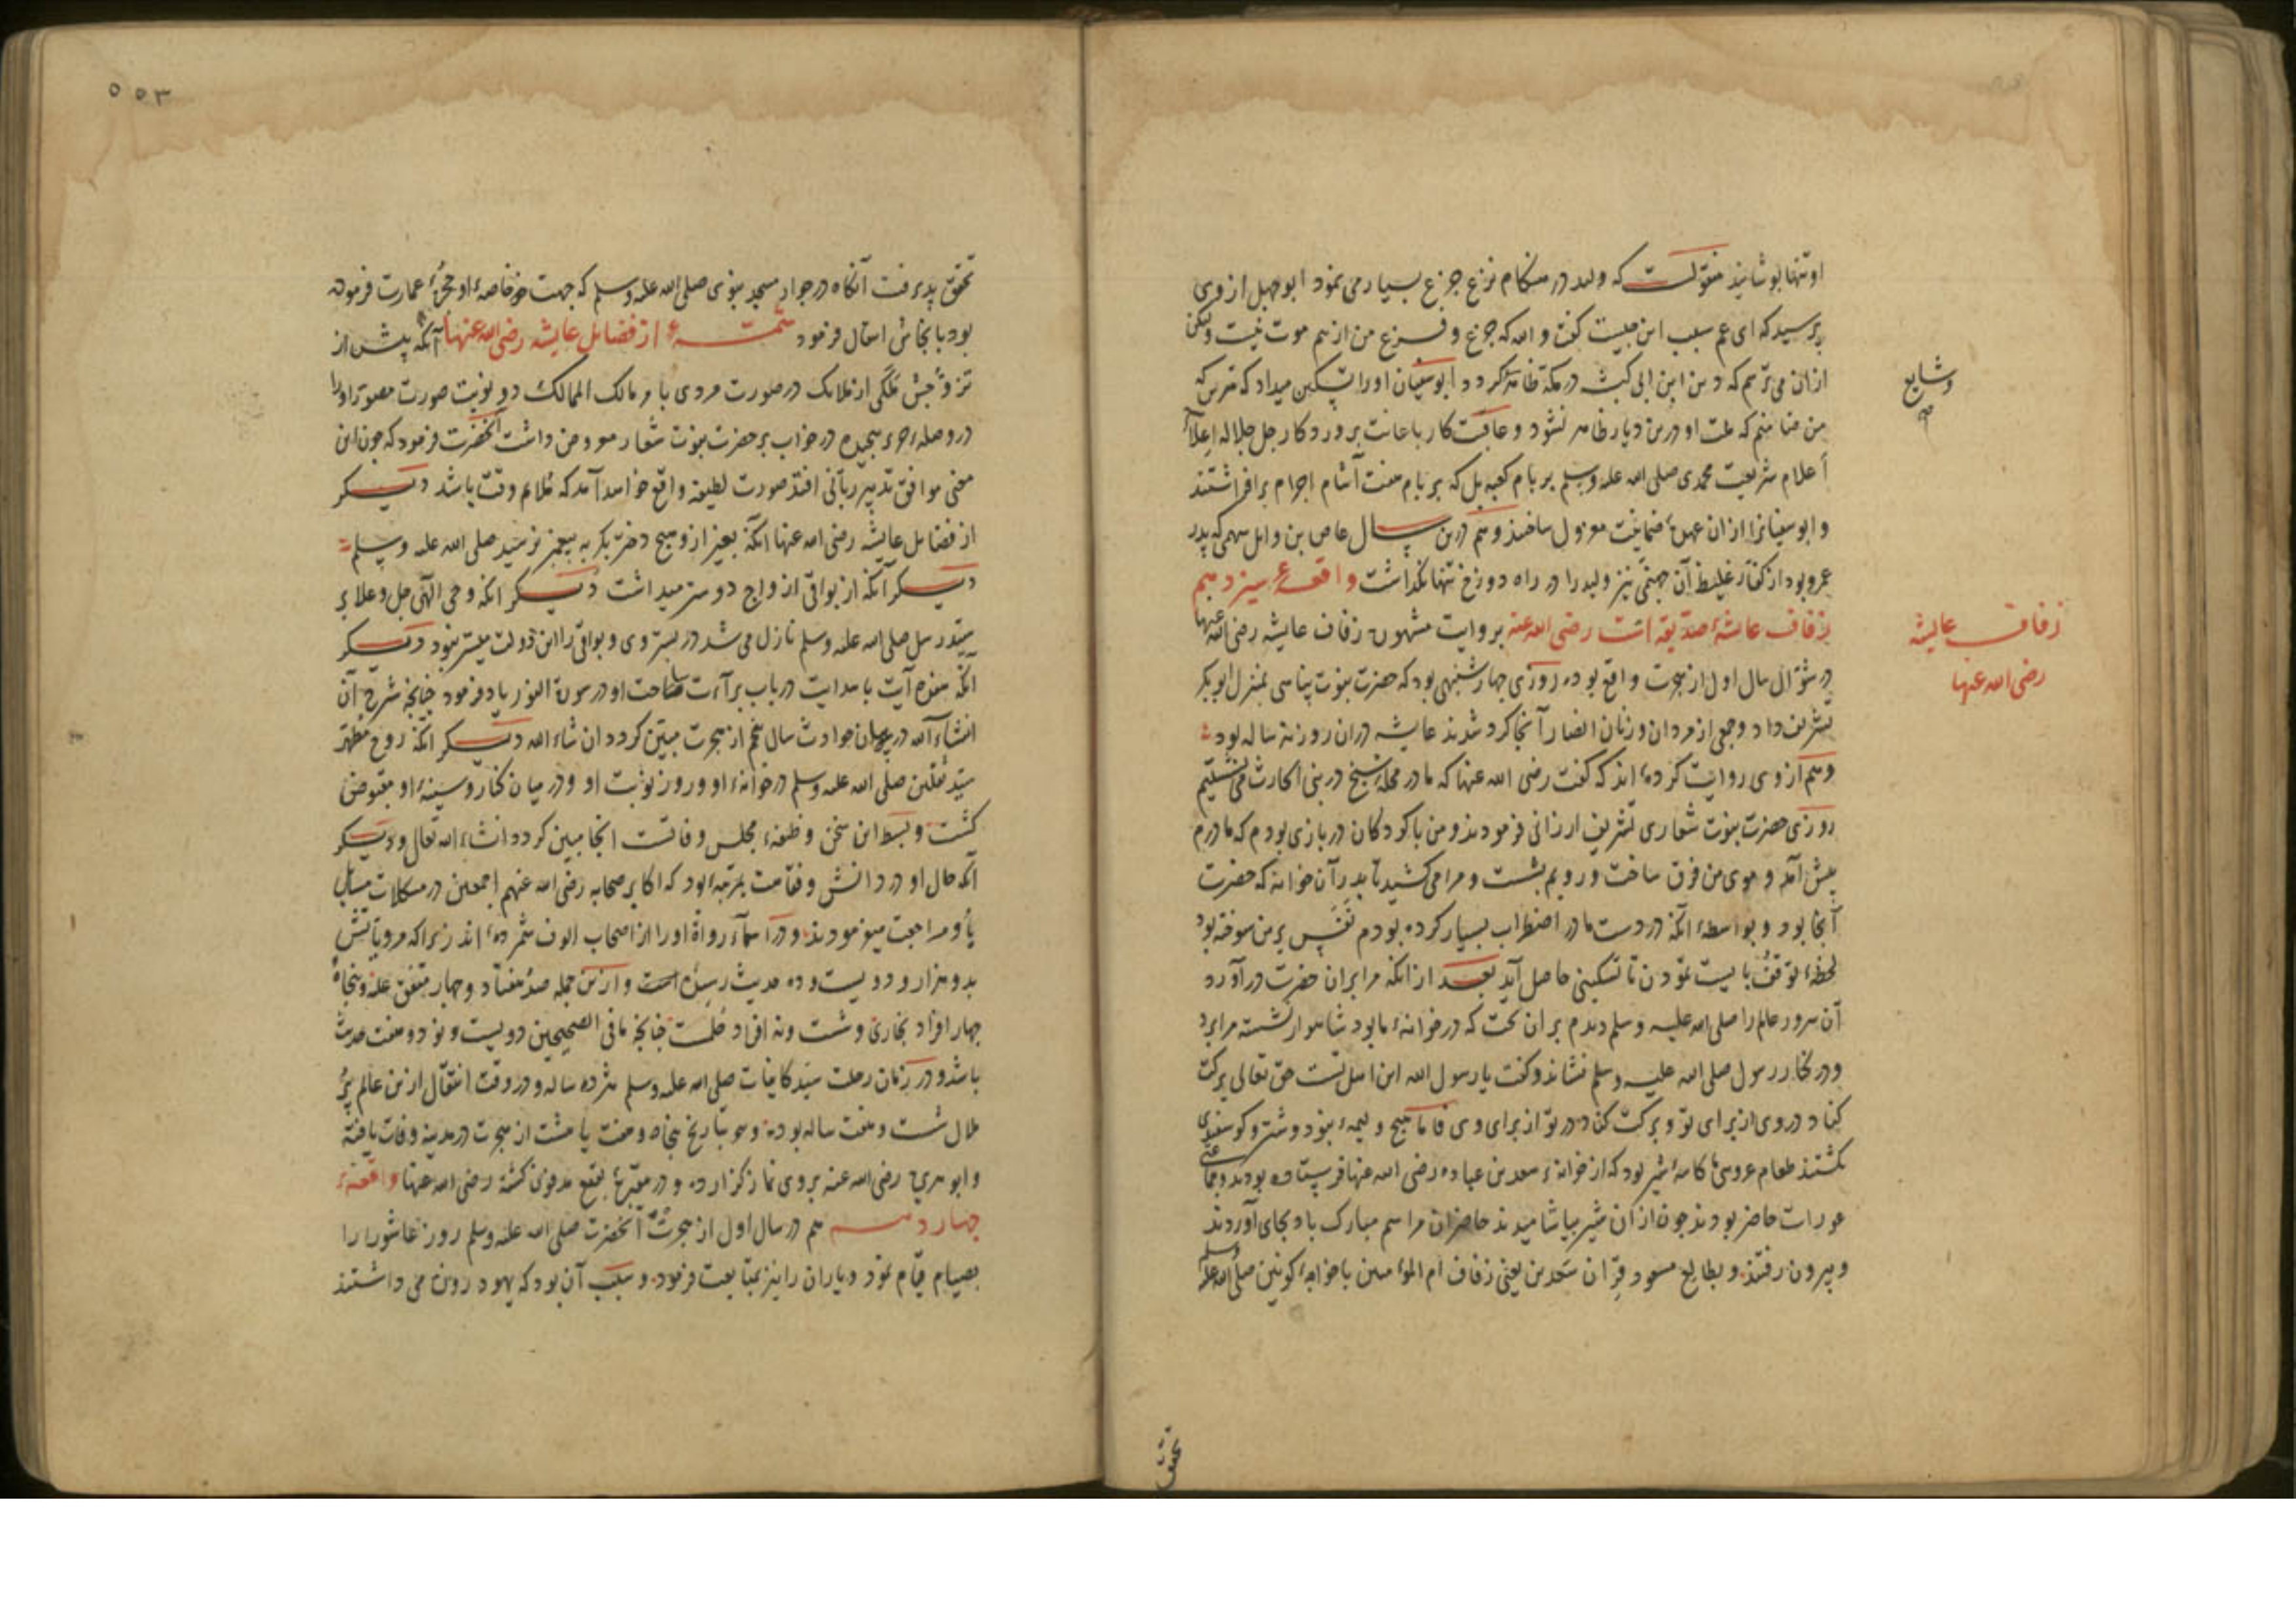 او تنها بوشانیذ منقولست که ولید در هنکام نزع جزع بسیار می نمود ابوجهل از وی
پرسید که ای عم سبب این چیست کفت و الله که جزع و فزع من از بیم موت نیست ولیکن
ازان می ترسم که دین ابن ابی کبشه در مکه ظاهر کردد ابوسفیان اورا تسکین میداد که مترس که
من ضامنم که ملت او درین دیار ظاهر نشود و عاقبت کار باعانت پروردکار جل جلاله اعلاً
وشایع
أعلام شریعت محمدی صلی الله علیه وسلم بر بام کعبه بل که بر بام هفت اجرام برافراشتند
و ابوسفیانرا ازان عهدهٔ ضمانت معزول ساختند وهم درین سال عاص بن وایل سهمی که پدر
عمرو بود از کفار غلیظ آن جهنمی نیز ولید را در راه دوزخ تنها نکذاشت واقعهء سیزدهم
زفاف عایشهٔ صدیقه است رضی الله عنه بروایت مشهوره زفاف عایشه رضی الله عنها
زفاف عایشه
رضی الله عنها
در شوّال سال اول از هجرت واقع بوده روزی چهارشنبهی بود که حضرت نبوت پناهی بمنزل ابوبکر
تشریف داد و جمعی از مردان و زنان انصار آنجا کرد شدند عایشه دران روز نه ساله بود
وهم از وی روایت کرده اند که کفت رضی الله عنها که ما در محلهٔ سنح در بنی الحارث می نشستیم
روزی حضرت نبوت شعاری تشریف ارزانی فرمودند و من با کودکان در بازی بودم که مادرم
پیش آمد و موی من فرق ساخت و رویم بشست و مرا می کشید تا بدر آن خانه که حضرت
آنجا بود و بواسطهٔ آنکه در دست مادر اضطراب بسیار کرده بودم نفس بر من سوخته بود
لحظهٔ توقف بایست نمودن تا تسکینی حاصل آید بعد ازانکه مرا بران حضرت درآورد
آن سرور عالم را صلی الله علیه وسلم دیدم بران تخت که در خانهٔ ما بود شاهوار نشسته مرا برد
و در کنار رسول صلی الله علیه وسلم نشاند و کفت یا رسول الله این اهل تست حق تعالی برکت
کناد در وی از برای تو و برکت کناد در تو از برای وی فاما هیچ ولیمهٔ نبود و شتر و کوسفندی
نکشتند طعام عروسی ما کاسهٔ شیر بود که از خانهٔ سعد بن عباده رضی الله عنها فرستاده بودند
عورات حاضر بودند چون ازان شیر بیاشامیدند حاضران مراسم مبارک باد بجای آوردند
و بیرون رفتند و بطالع مسعود قران سعدین یعنی زفاف ام المؤمنین با خواجهٔ کونین صلی الله علیه وسلم
تحقق
٥٥٣
تحقق پذیرفت آنکاه در جوار مسجد نبوی صلی الله علیه وسلم که جهت خاصهٔ او حجرهٔ عمارت فرموده
بود بآنجاش انتقال فرمود تتمهٔ از فضایل عایشه رضی الله عنها آنکه پیش از
تزوّجش ملکی از ملایک در صورت مردی بامر مالک الممالک دو نوبت صورت مصور او را
در وصلهٔ حریر پیچیده در خواب بر حضرت نبوت شعار معروض داشت آنحضرت فرمود که چون این
معنی موافق تدبیر ربّانی افتد صورت لطیفه واقع خواهد آمد که ملایم وقت باشد دیکر
از فضایل عایشه رضی الله عنها آنکه بغیر از وی هیچ دختر بکر به پیغمبر نرسید صلی الله علیه وسلم
دیکر آنکه از بواقی ازواج دوستر میداشت دیکر آنکه وحی الهی جل وعلا بر
سید رسل صلی الله علیه وسلم نازل می شد در بستر وی و بواقی را این دولت میسر نبود دیکر
آنکه هفده آیت باهدایت در باب برآءت ساحت او در سورة النور یاد فرمود چنانچه شرح آن
انشاءالله در بیان حوادث سال پنجم از هجرت مبیّن کردد ان شاء الله دیکر آنکه روح مطهر
سید ثقلین صلی الله علیه وسلم در خانهٔ او و روز نوبت او و در میان کنار و سینهٔ او مقبوض
کشت و بسط این سخن وظیفهٔ مجلس وفاتست انجا مبین کردد انشاء الله تعالی و دیکر
آنکه حال او در دانش و فقاهت بمرتبهٔ بود که اکابر صحابه رضی الله عنهم اجمعین در مشکلات مسایل
باو مراجعت میفرمودند و در اسمآء رواة او را از اصحاب الوف شمرده اند زیراکه مرویاتش
بدو هزار و دویست و ده حدیث رسیده است و ازین جمله صد هفتاد و چهار متفق علیه و پنجاه
چهار افراد بخاری و شصت و نه افراد مسلم چنانچه ما فی الصحیحین دویست و نود و هفت حدیث
باشد و در زمان رحلت سید کاینات صلی الله علیه وسلم هژده ساله و در وقت انتقال ازین عالم پر
ملال شصت و هفت ساله بوده و هو بتاریخ پنجاه و هفت یا هشت از هجرت در مدینه وفات یافته
و ابوهریره رضی الله عنه بر وی نماز کزارده و در مقبرهٔ بقیع مدفون کشته رضی الله عنها واقعهٔ
چهاردهم هم در سال اول از هجرت آنحضرت صلی الله علیه وسلم روز عاشورا را
بصیام قیام نمود و یاران را نیز بمتابعت فرمود و سبب آن بود که یهود روزه می داشتند